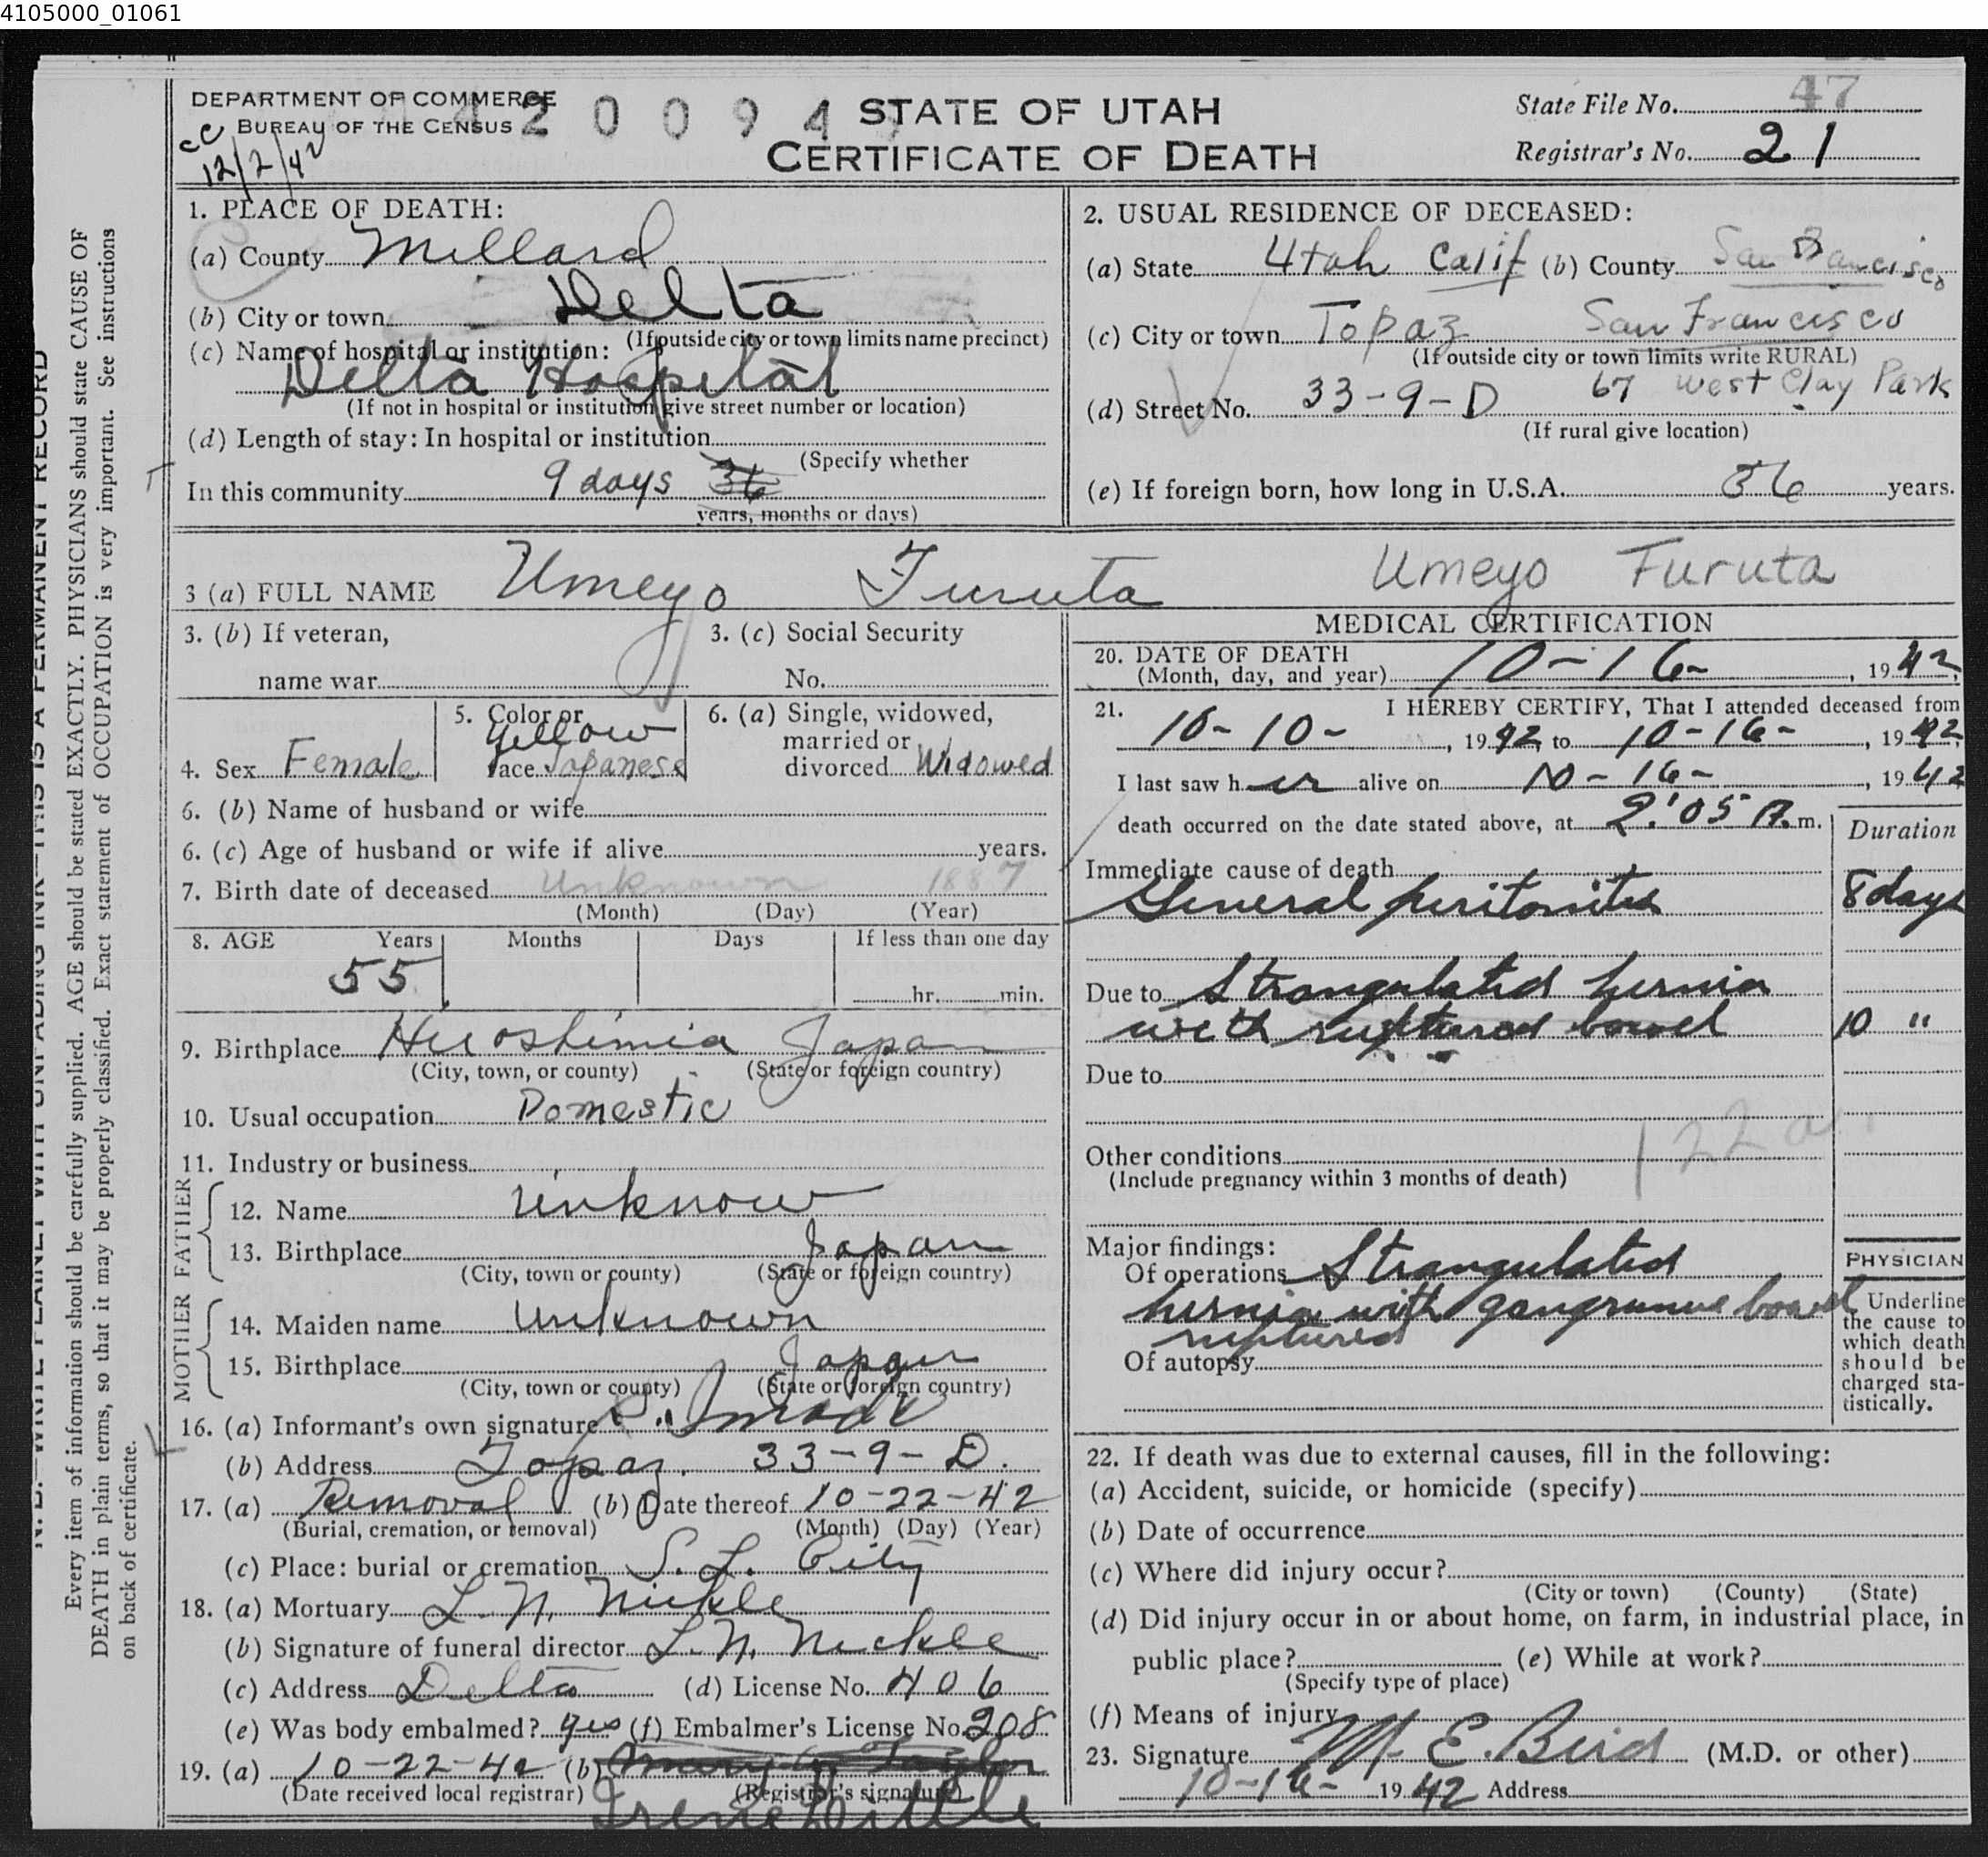 4105000_01061
DEPARTMENT OF COMMERCE
BUREAU OF THE CENSUS
42 0 0 9 4 7
CC
12/2/42
STATE OF UTAH
CERTIFICATE OF DEATH
State File No. 47
Registrar's No. 21
N. B.—WRITE PLAINLY WITH UNFADING INK—THIS IS A PERMANENT RECORD
Every item of information should be carefully supplied. AGE should be stated EXACTLY. PHYSICIANS should state CAUSE OF
DEATH in plain terms, so that it may be properly classified. Exact statement of OCCUPATION is very important. See instructions
on back of certificate.
1. PLACE OF DEATH:
(a) County Millard
(b) City or town Delta
(If outside city or town limits name precinct)
(c) Name of hospital or institution:
Delta Hospital
(If not in hospital or institution give street number or location)
(d) Length of stay: In hospital or institution
(Specify whether
In this community 9 days 36
years, months or days)
2. USUAL RESIDENCE OF DECEASED:
(a) State Utah Calif (b) County San Francisco
(c) City or town Topaz San Francisco
(If outside city or town limits write RURAL)
(d) Street No. 33-9-D 67 West Clay Park
(If rural give location)
(e) If foreign born, how long in U.S.A. 36 years.
3 (a) FULL NAME Umeyo Furuta Umeyo Furuta
3. (b) If veteran,
name war
3. (c) Social Security
No.
4. Sex Female
5. Color or Yellow
race Japanese
6. (a) Single, widowed,
married or
divorced Widowed
6. (b) Name of husband or wife
6. (c) Age of husband or wife if alive years.
7. Birth date of deceased Unknown 1887
(Month) (Day) (Year)
8. AGE Years Months Days If less than one day
55 hr. min.
9. Birthplace Hiroshimia Japan
(City, town, or county) (State or foreign country)
10. Usual occupation Domestic
11. Industry or business
FATHER
12. Name unknow
13. Birthplace Japan
(City, town or county) (State or foreign country)
MOTHER
14. Maiden name unknown
15. Birthplace Japan
(City, town or county) (State or foreign country)
16. (a) Informant's own signature
(b) Address Topaz. 33-9-D.
17. (a) Removal (b) Date thereof 10-22-42
(Burial, cremation, or removal) (Month) (Day) (Year)
(c) Place: burial or cremation S. L. City
18. (a) Mortuary L. N. Nickle
(b) Signature of funeral director L. N. Nickle
(c) Address Delta (d) License No. 406
(e) Was body embalmed? yes (f) Embalmer's License No. 208
19. (a) 10-22-42 (b)
(Date received local registrar) (Registrar's signature)
Irene
MEDICAL CERTIFICATION
20. DATE OF DEATH
(Month, day, and year) 10-16-, 1942
21. I HEREBY CERTIFY, That I attended deceased from
10-10-, 1942 to 10-16-, 1942
I last saw her alive on 10-16-, 1942
death occurred on the date stated above, at 2:05 A.m.
Duration
Immediate cause of death
General peritonitis 8 days
Due to Strangulated hernia
with ruptured bowel 10 "
Due to
122 a
Other conditions
(Include pregnancy within 3 months of death)
Major findings:
Of operations Strangulated
hernia with gangrenous bowel
ruptured
Of autopsy
PHYSICIAN
Underline
the cause to
which death
should be
charged sta-
tistically.
22. If death was due to external causes, fill in the following:
(a) Accident, suicide, or homicide (specify)
(b) Date of occurrence
(c) Where did injury occur?
(City or town) (County) (State)
(d) Did injury occur in or about home, on farm, in industrial place, in
public place? (e) While at work?
(Specify type of place)
(f) Means of injury
23. Signature M. E. Bird (M.D. or other)
10-16- 1942 Address